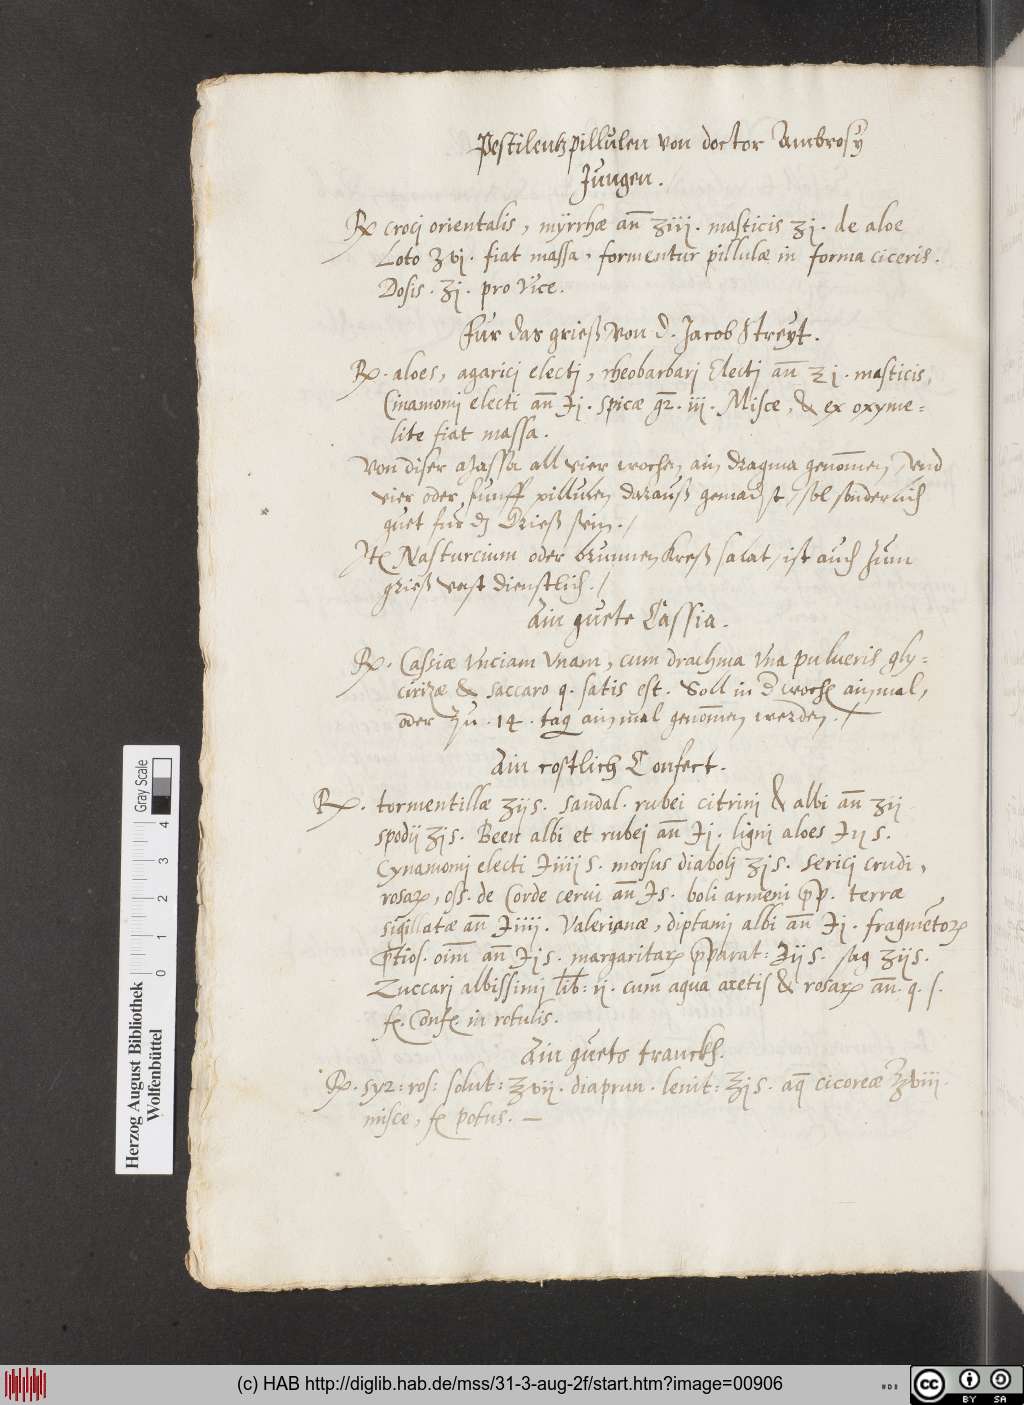 Pestilentzpillulen von doctor Ambrosy
Jungen.
℞ crocj orientalis, mÿrrhæ an̄ ʒiij. masticis ʒj. de aloe
Loto ʒvj. fiat massa, formentur pillulæ in forma ciceris.
Dosis. ʒj. pro vice.
Für das grieß von d. Jacob Streyt.
℞. aloes, agaricj electj, rheobarbarj Electj an̄ ʒj. masticis,
Cinamonij electi an̄ ℈j. spicæ gr. iij. Misce, & ex oxyme=
lite fiat massa.
Von diser Massa all vier wochen ain dragma genom̄en, vnd
vier oder funff pillulen darauß gemacht, sol sonderlich
guet fur dz Grieß sein./
Itē Nasturcium oder brunnenkreß salat, ist auch zum
grieß vast dienstlich./
Ain guete Cassia.
℞. Cassiæ vnciam vnam, cum drachma vna pulueris gly=
cirizæ & saccaro q. satis est. Soll in d wochē ainmal,
oder zu .14. tag ainmal genom̄en werden./
Ain costlich Confect.
℞. tormentillæ ʒijs. sandal. rubei citrinj & albi an̄ ʒij
spodij ʒjs. Been albi et rubej an̄ ℈j. lignj aloes ℈ijs.
Cynamonj electi ℈iiijs. morsus diabolj ʒjs. sericj crudi,
rosarꝝ, oss. de Corde cerui an̄ ℈s. boli armeni p̄p. terræ
sigillatæ an̄ ℈iiij. Valerianæ, diptamj albi an̄ ℈j. fragmētorꝝ
p̄tios. oīm an̄ ℈js. margaritarꝝ p̄parat: ℈ijs. ʒijs.
Zuccarj albissimj lib: ij. cum aqua acetis & rosarꝝ an̄. q. s.
f. Conf. in rotulis.
Ain guets tranckh.
℞. syr: ros: solut: ℥vij. diaprun. lenit: ʒjs. aq̄ cicoreæ ℥viij.
misce, f. potus. —
Gray Scale
0 1 2 3 4
Herzog August Bibliothek
Wolfenbüttel
(c) HAB http://diglib.hab.de/mss/31-3-aug-2f/start.htm?image=00906
cc
BY SA